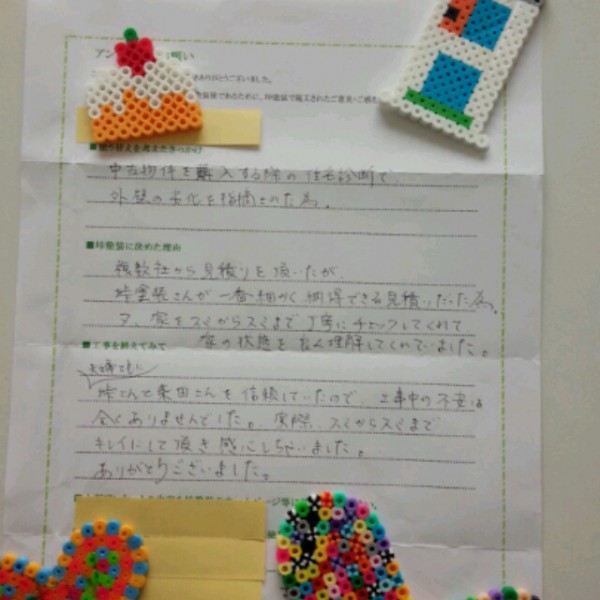 アン 願い
きありがとうございました。
塗装であるために、𫝶塗装で施工されたご意見・ご感
■塗り替えを考えたきっかけ
中古物件を購入する際の住宅診断で、
外壁の劣化を指摘された為。
塗装に決めた理由
複数社から見積りを頂いたが、
塗装さんが一番細かく納得できる見積りだった為。
又、家をスミからスミまで丁寧にチェックしてくれて
家の状態を良く理解してくれていました。
■工事を終えてみて
夫婦ともに
さんと桒田さんを信頼していたので、工事中の不安は
全くありませんでした。実際、スミからスミまで
キレイにして頂き感心しちゃいました。
ありがとうございました。